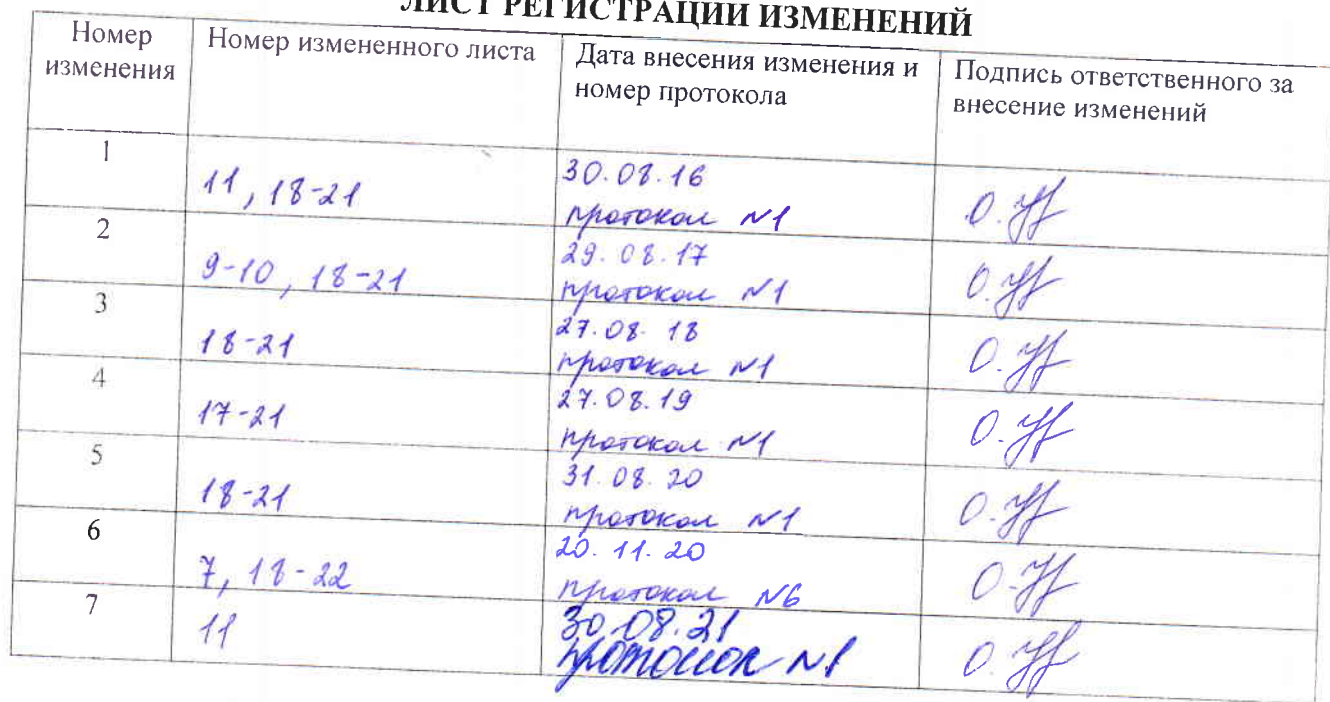 ЛИСТ РЕГИСТРАЦИИ ИЗМЕНЕНИЙ
Номер изменения
Номер измененного листа
Дата внесения изменения и номер протокола
Подпись ответственного за внесение изменений
1
11, 18-21
30.08.16
протокол №1
2
9-10, 18-21
29.08.17
протокол №1
3
18-21
27.08.18
протокол №1
4
17-21
27.08.19
протокол №1
5
18-21
31.08.20
протокол №1
6
7, 18-22
20.11.20
протокол №6
7
11
30.08.21
протокол №1